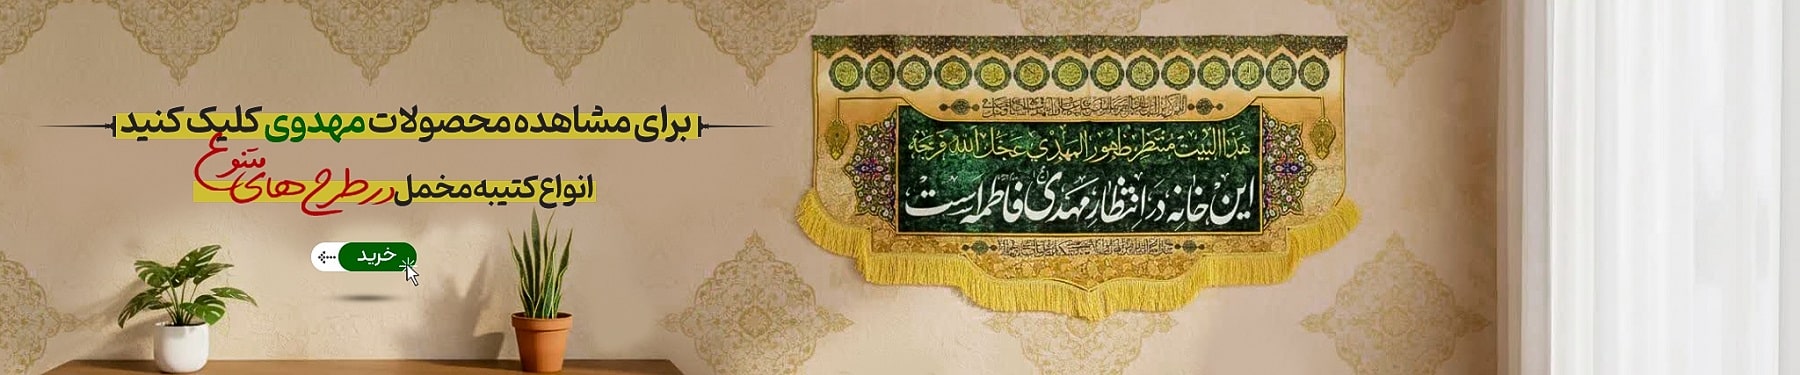 برای مشاهده محصولات مهدوی کلیک کنید
انواع کتیبه مخمل در طرح های متنوع
خرید
هذا البیت منتظر ظهور المهدی عجل الله فرجه
این خانه در انتظار مهدی فاطمه است